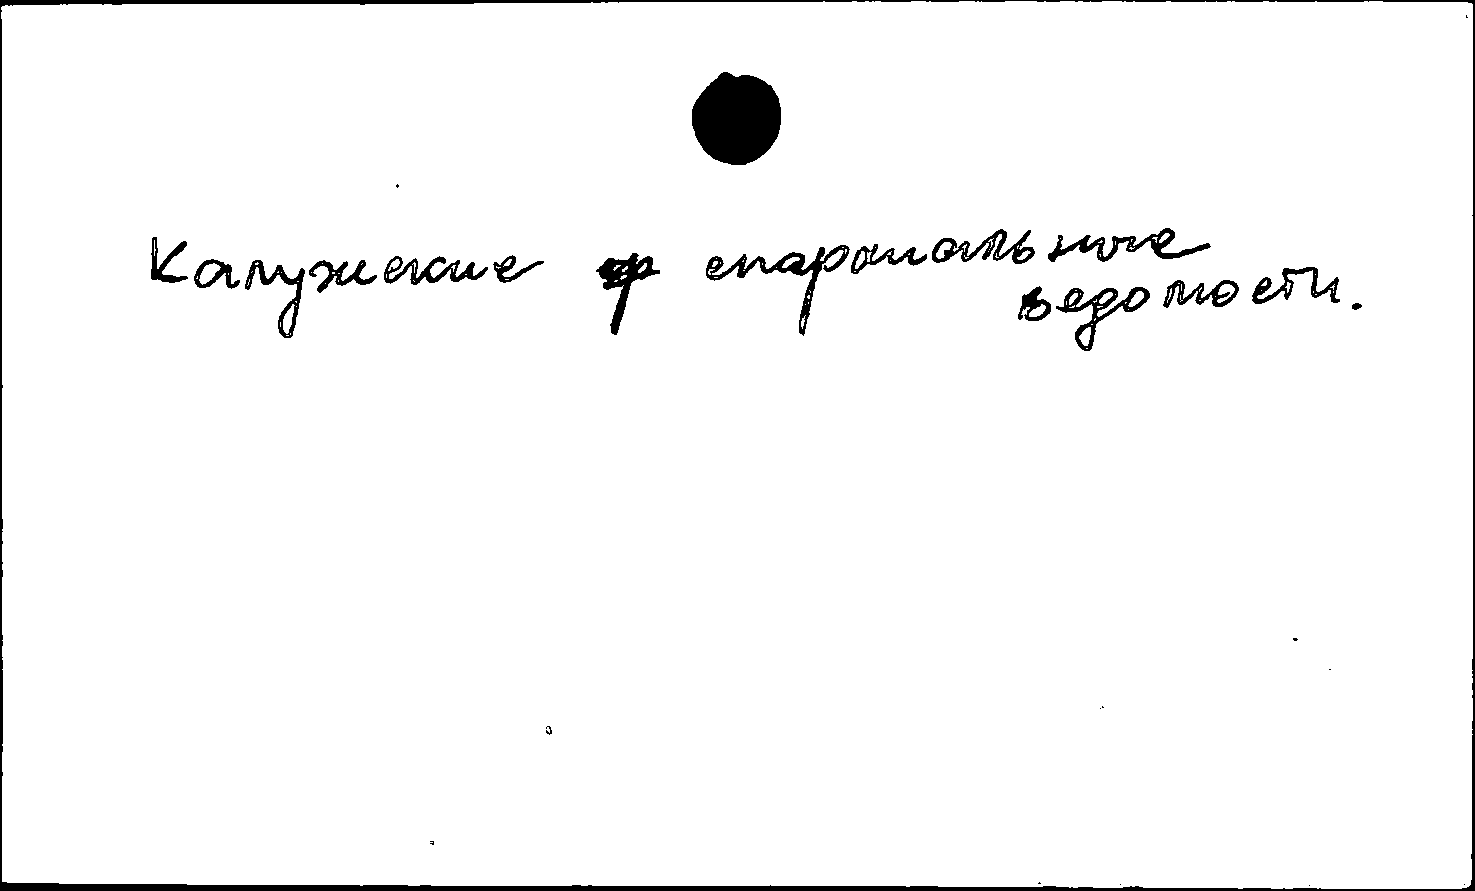 Калужские епархиальные
ведомости.